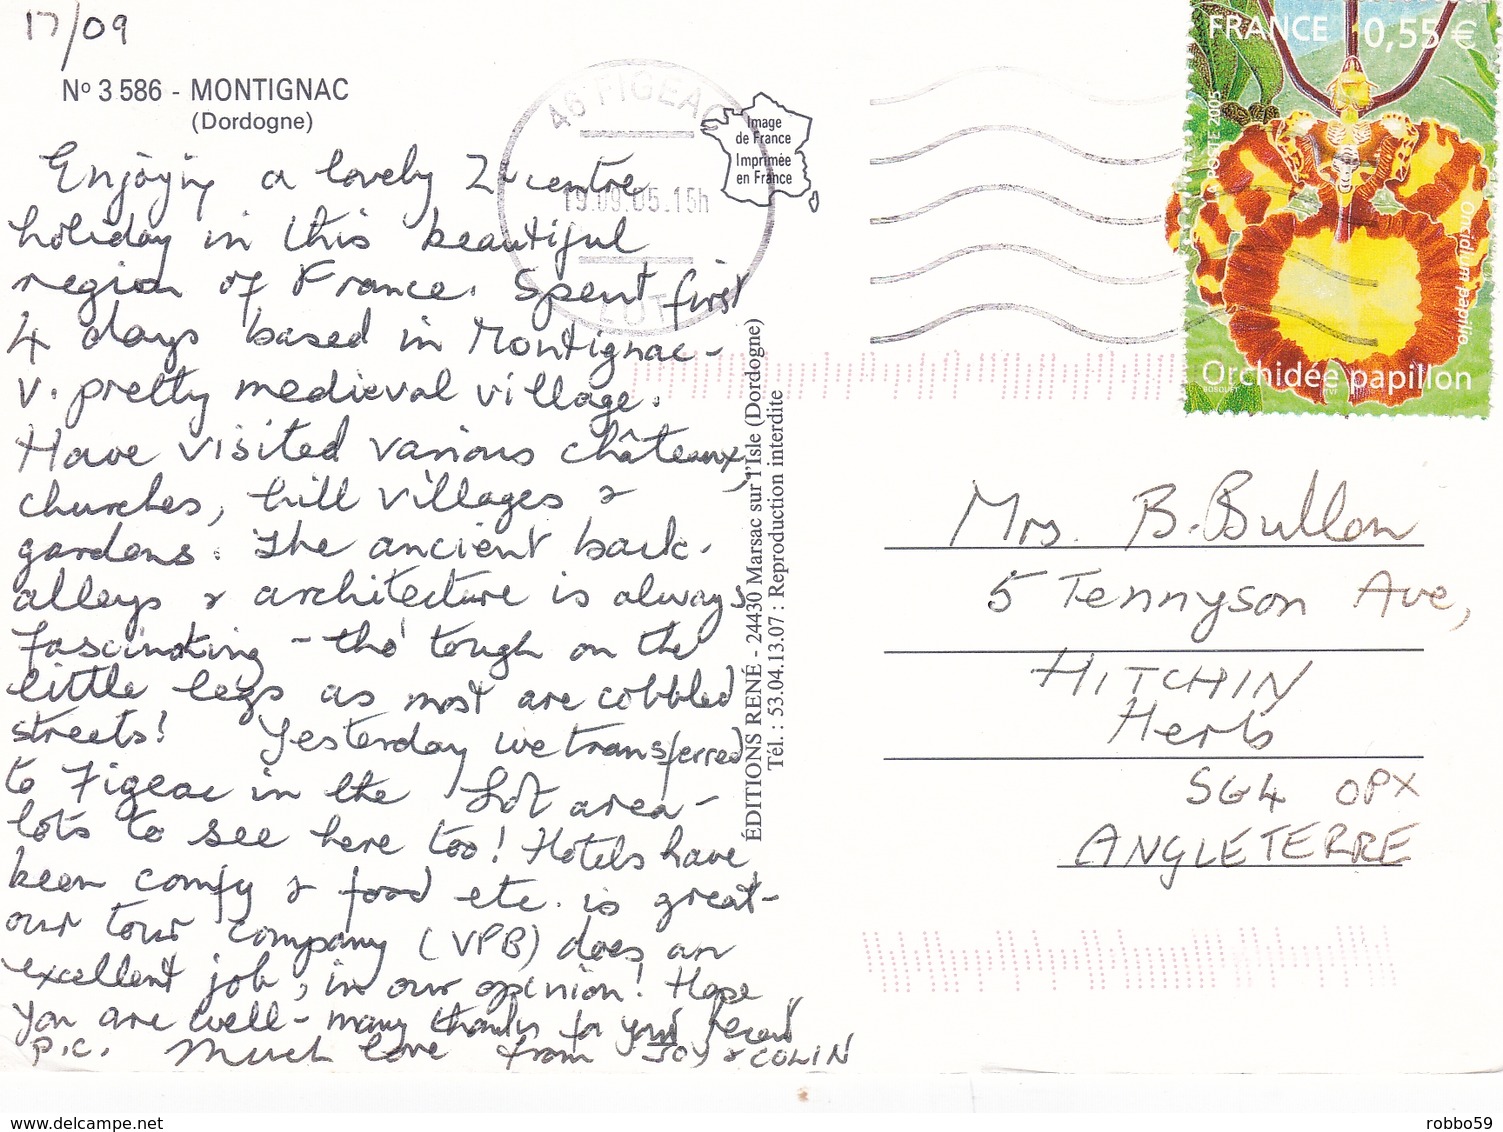 17/09
Nº 3 586 - MONTIGNAC
(Dordogne)
Enjoying a lovely 2-centre
holiday in this beautiful
region of France. Spent first
4 days based in Montignac -
v. pretty medieval village.
Have visited various châteaux,
churches, hill villages &
gardens. The ancient back-
alleys & architecture is always
fascinating - tho' tough on the
little legs as most are cobbled
streets! Yesterday we transferred
to Figeac in the Lot area -
lots to see here too! Hotels have
been comfy & food etc. is great -
our tour company (VPB) does an
excellent job, in our opinion! Hope
you are well - many thanks for your recent
p.c. Much love from JOY & COLIN
46 FIGEAC
19.09.05.15h
LOT
Image
de France
Imprimée
en France
ÉDITIONS RENÉ - 24430 Marsac sur l'Isle (Dordogne)
Tél. : 53.04.13.07 : Reproduction interdite
FRANCE 0,55 €
LA POSTE 2005
Oncidium papilio
Orchidée papillon
Mrs. B. Bullon
5 Tennyson Ave,
HITCHIN
Herts
SG4 0PX
ANGLETERRE
robbo59